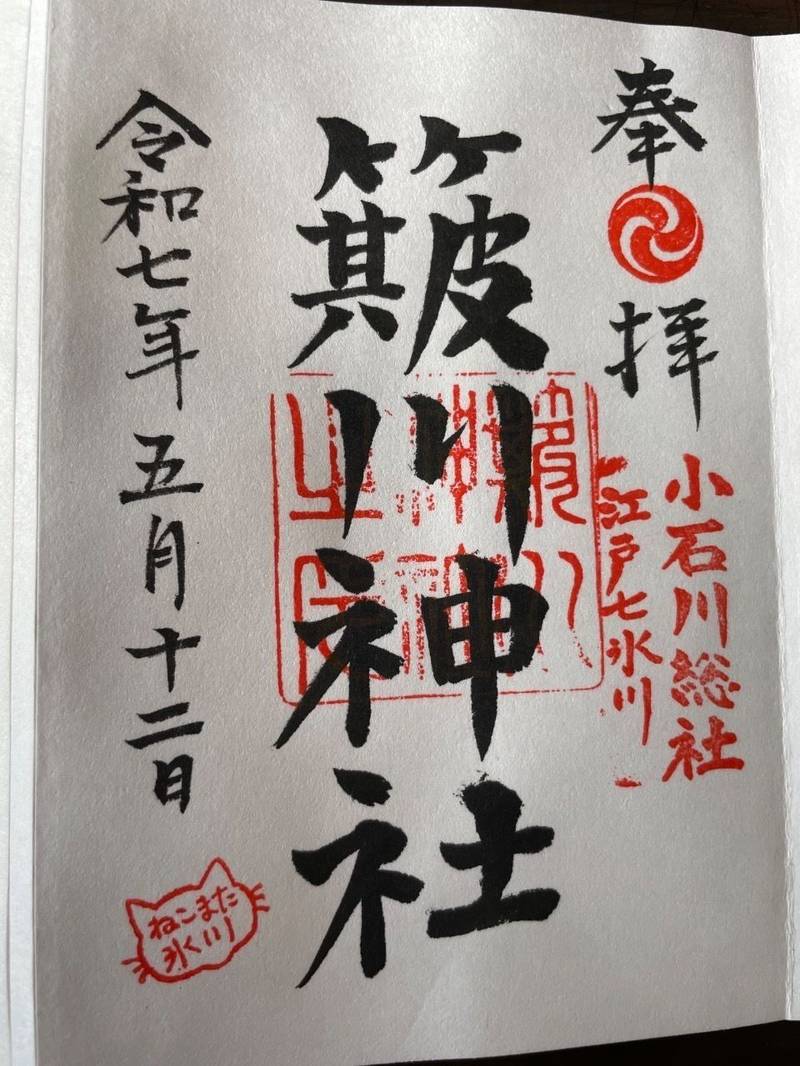 奉拝
小石川総社
江戸七氷川
簸川神社
簸川
神社
之印
令和七年五月十二日
ねこまた
氷川